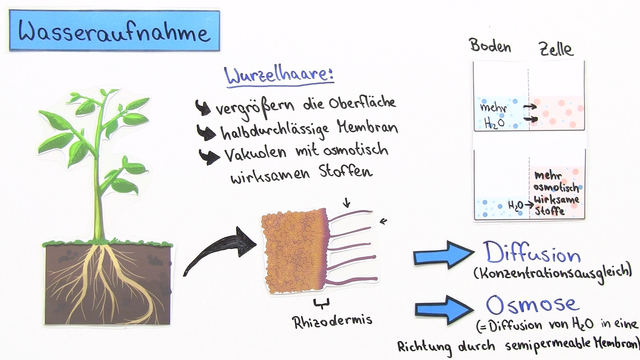 Wasseraufnahme
Wurzelhaare:
vergrößern die Oberfläche
halbdurchlässige Membran
Vakuolen mit osmotisch
wirksamen Stoffen
Rhizodermis
Boden Zelle
mehr
H₂O
H₂O
mehr
osmotisch
wirksame
Stoffe
Diffusion
(Konzentrationsausgleich)
Osmose
(= Diffusion von H₂O in eine
Richtung durch semipermeable Membran)